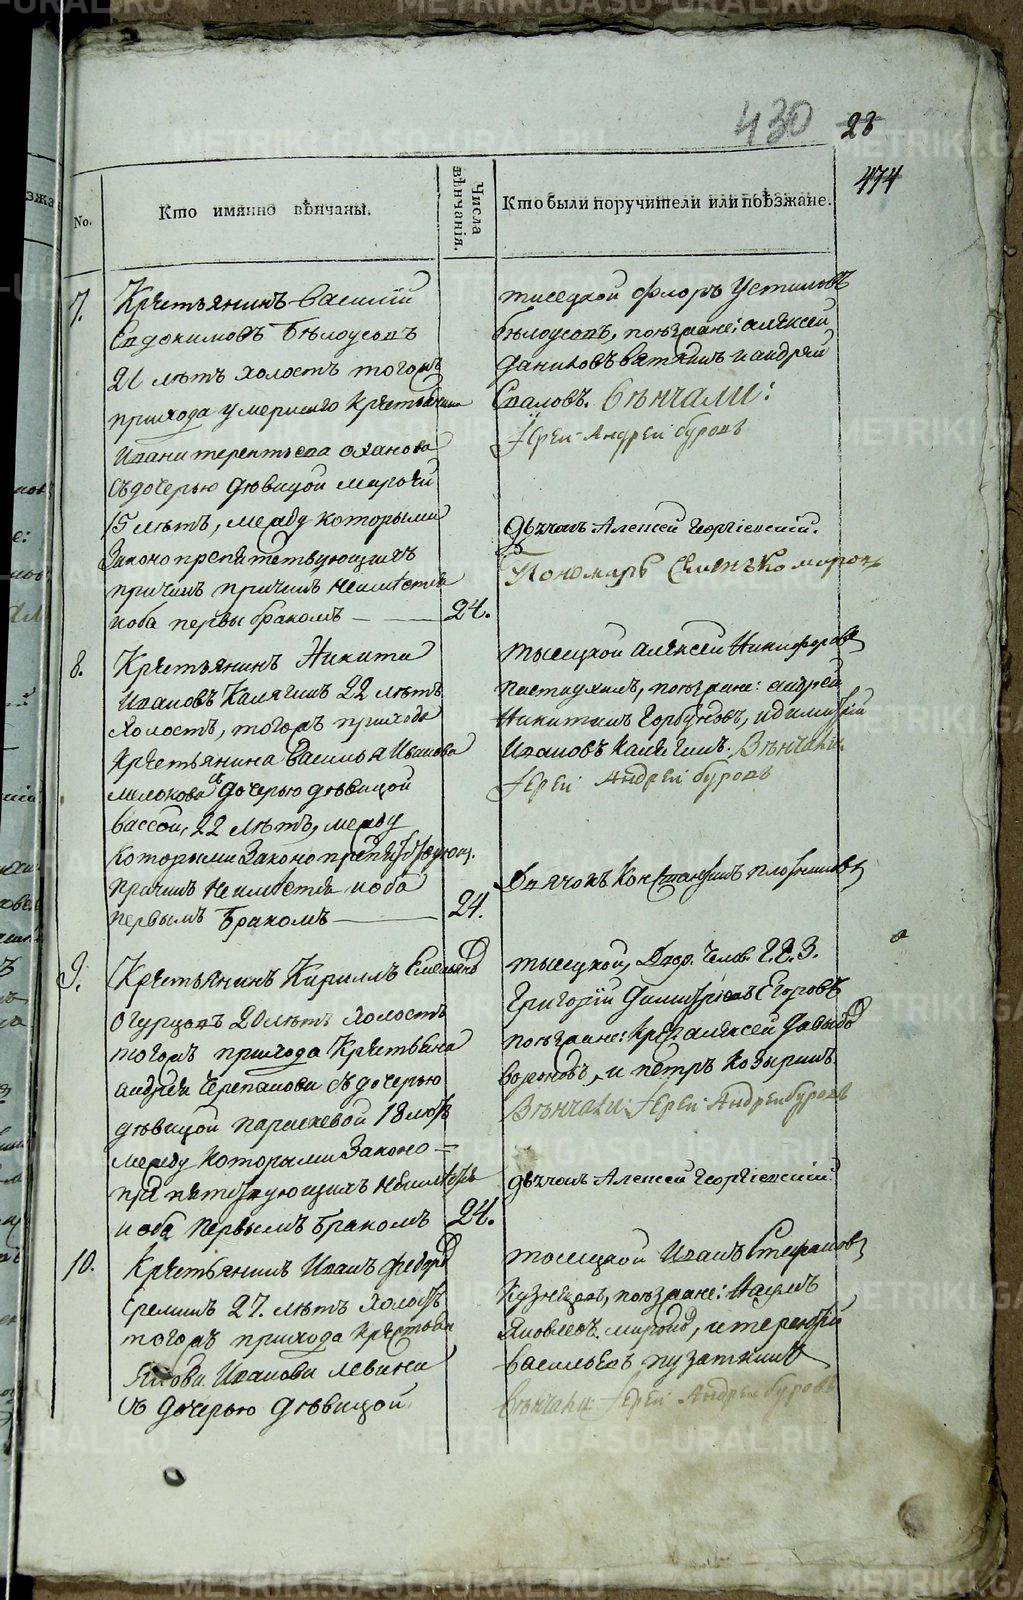 430 28
474
No.
Кто имянно вѣнчаны.
Числа вѣнчанія.
Кто были поручители или поѣзжане.
7. Крестьянинъ Василій
Евдокимовъ Бѣлоусовъ
21 лѣтъ холостъ тогожъ
прихода умершего крестьянина
Ивана терентьева
съ дочерью дѣвицой марфой
15 лѣтъ, между которыми
Законопрепятствующихъ
причинъ причинъ неимѣется
и оба первы бракомъ — 24.
тысецкой Флоръ Устиновъ
бѣлоусовъ, поѣзжане: алексей
даниловъ вяткинъ и андрей
вѣнчали:
Іерей Андрей буровъ
дьячокъ Алексей Георгіевскій.
Пономарь
8. Крестьянинъ Никита
Ивановъ Калягинъ 22 лѣтъ
холостъ, тогожъ прихода
крестьянина Василья Иванова
съ дочерью дѣвицой
вассой, 22 лѣтъ, между
которыми Законопрепятствующ.
причинъ неимѣется и оба
первымъ бракомъ — 24.
тысецкой алексей Никифоровъ
поѣзжане: андрей
Никитинъ Горбуновъ, и димитрій
Ивановъ Калягинъ. Вѣнчали:
Іерей Андрей буровъ
Дьячокъ Константинъ плотниковъ
9. Крестьянинъ Кириллъ Емельянъ
Огурцовъ 20 лѣтъ холостъ
тогожъ прихода Крестьяна
андрея Черепанова съ дочерью
дѣвицой параскевой 18 лѣтъ
между которыми Законо=
препятствующихъ неимѣется
и оба первымъ бракомъ 24.
тысецкой, Двор. Челов. Г. Е. З.
Григорій Димитріевъ Егоровъ
поѣзжане: Крес. алексей давыдо
и петръ козыринъ
Вѣнчали: Іерей Андрей буровъ
дьячокъ Алексей Георгіевскій.
10. Крестьянинъ Иванъ федоро
Ереминъ 27. лѣтъ холостъ
тогожъ прихода крестьяни
Якова Иванова левина
съ дочерью дѣвицой
тысецкой Иванъ Стефановъ
Кузнецовъ, поѣзжане: Наумъ
Яковлевъ и терентій
васильевъ пузаткинъ
Вѣнчали: Іерей Андрей буровъ
METRIKI.GASO-URAL.RU